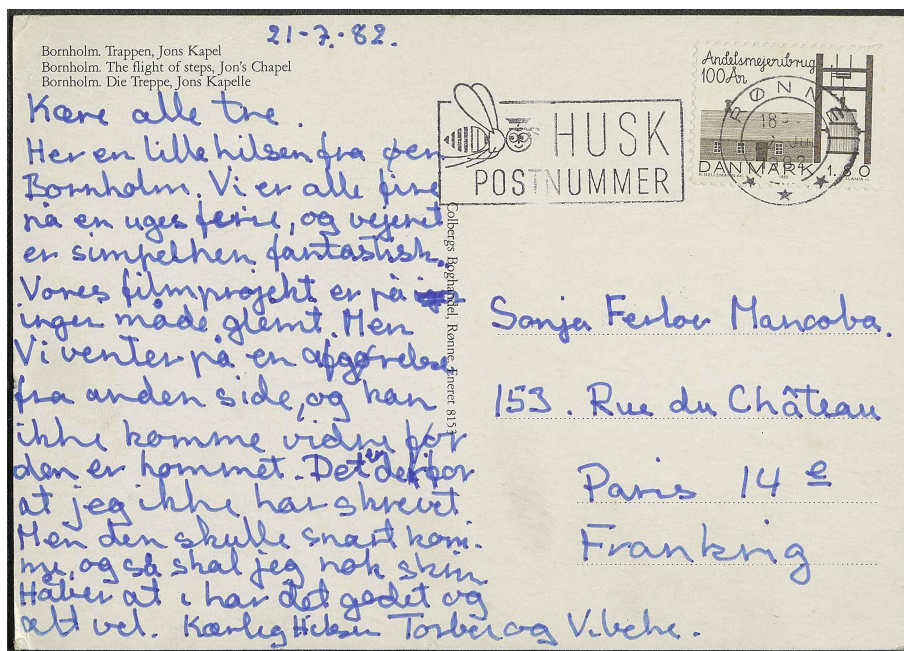 21-7.-82.
Bornholm. Trappen, Jons Kapel
Bornholm. The flight of steps, Jon's Chapel
Bornholm. Die Treppe, Jons Kapelle
Kære alle tre.
Her en lille hilsen fra øen
Bornholm. Vi er alle fire
på en uges ferie, og vejeret
er simpelhen fantastisk.
Vores filmprojekt er på
ingen måde glemt. Men
Vi venter på en afgørelse
fra anden side, og kan
ikke komme vidre før
den er kommet. Det er derfor
at jeg ikke har skrevet
Men den skulle snart kom-
me, og så skal jeg nok skriv
Håber at i har det godet og
alt vel. Kærlig Hilsen Torben og Vibeke.
Colbergs Boghandel, Rønne, Eneret 8153
HUSK
POSTNUMMER
Andelsmejeribrug
100 År
DANMARK 1.80
RØNNE
Sonja Ferlov Mancoba.
153. Rue du Château
Paris 14 e
Frankrig